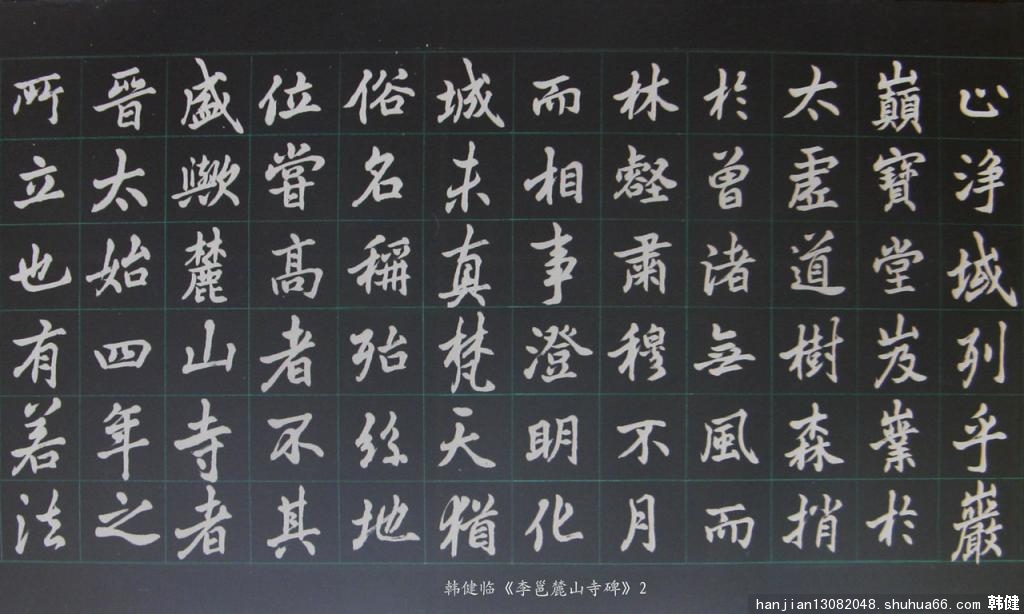 心淨域列乎巖
巔寶堂岌業於
太虛道樹森捎
於曾渚無風而
林壑肅穆不月
而相事澄明化
城未真梵天猶
俗名稱殆絲地
位嘗高者不其
盛歟麓山寺者
晉太始四年之
所立也有若法
韩健临《李邕麓山寺碑》2
hanjian13082048.shuhua66.com 韩健